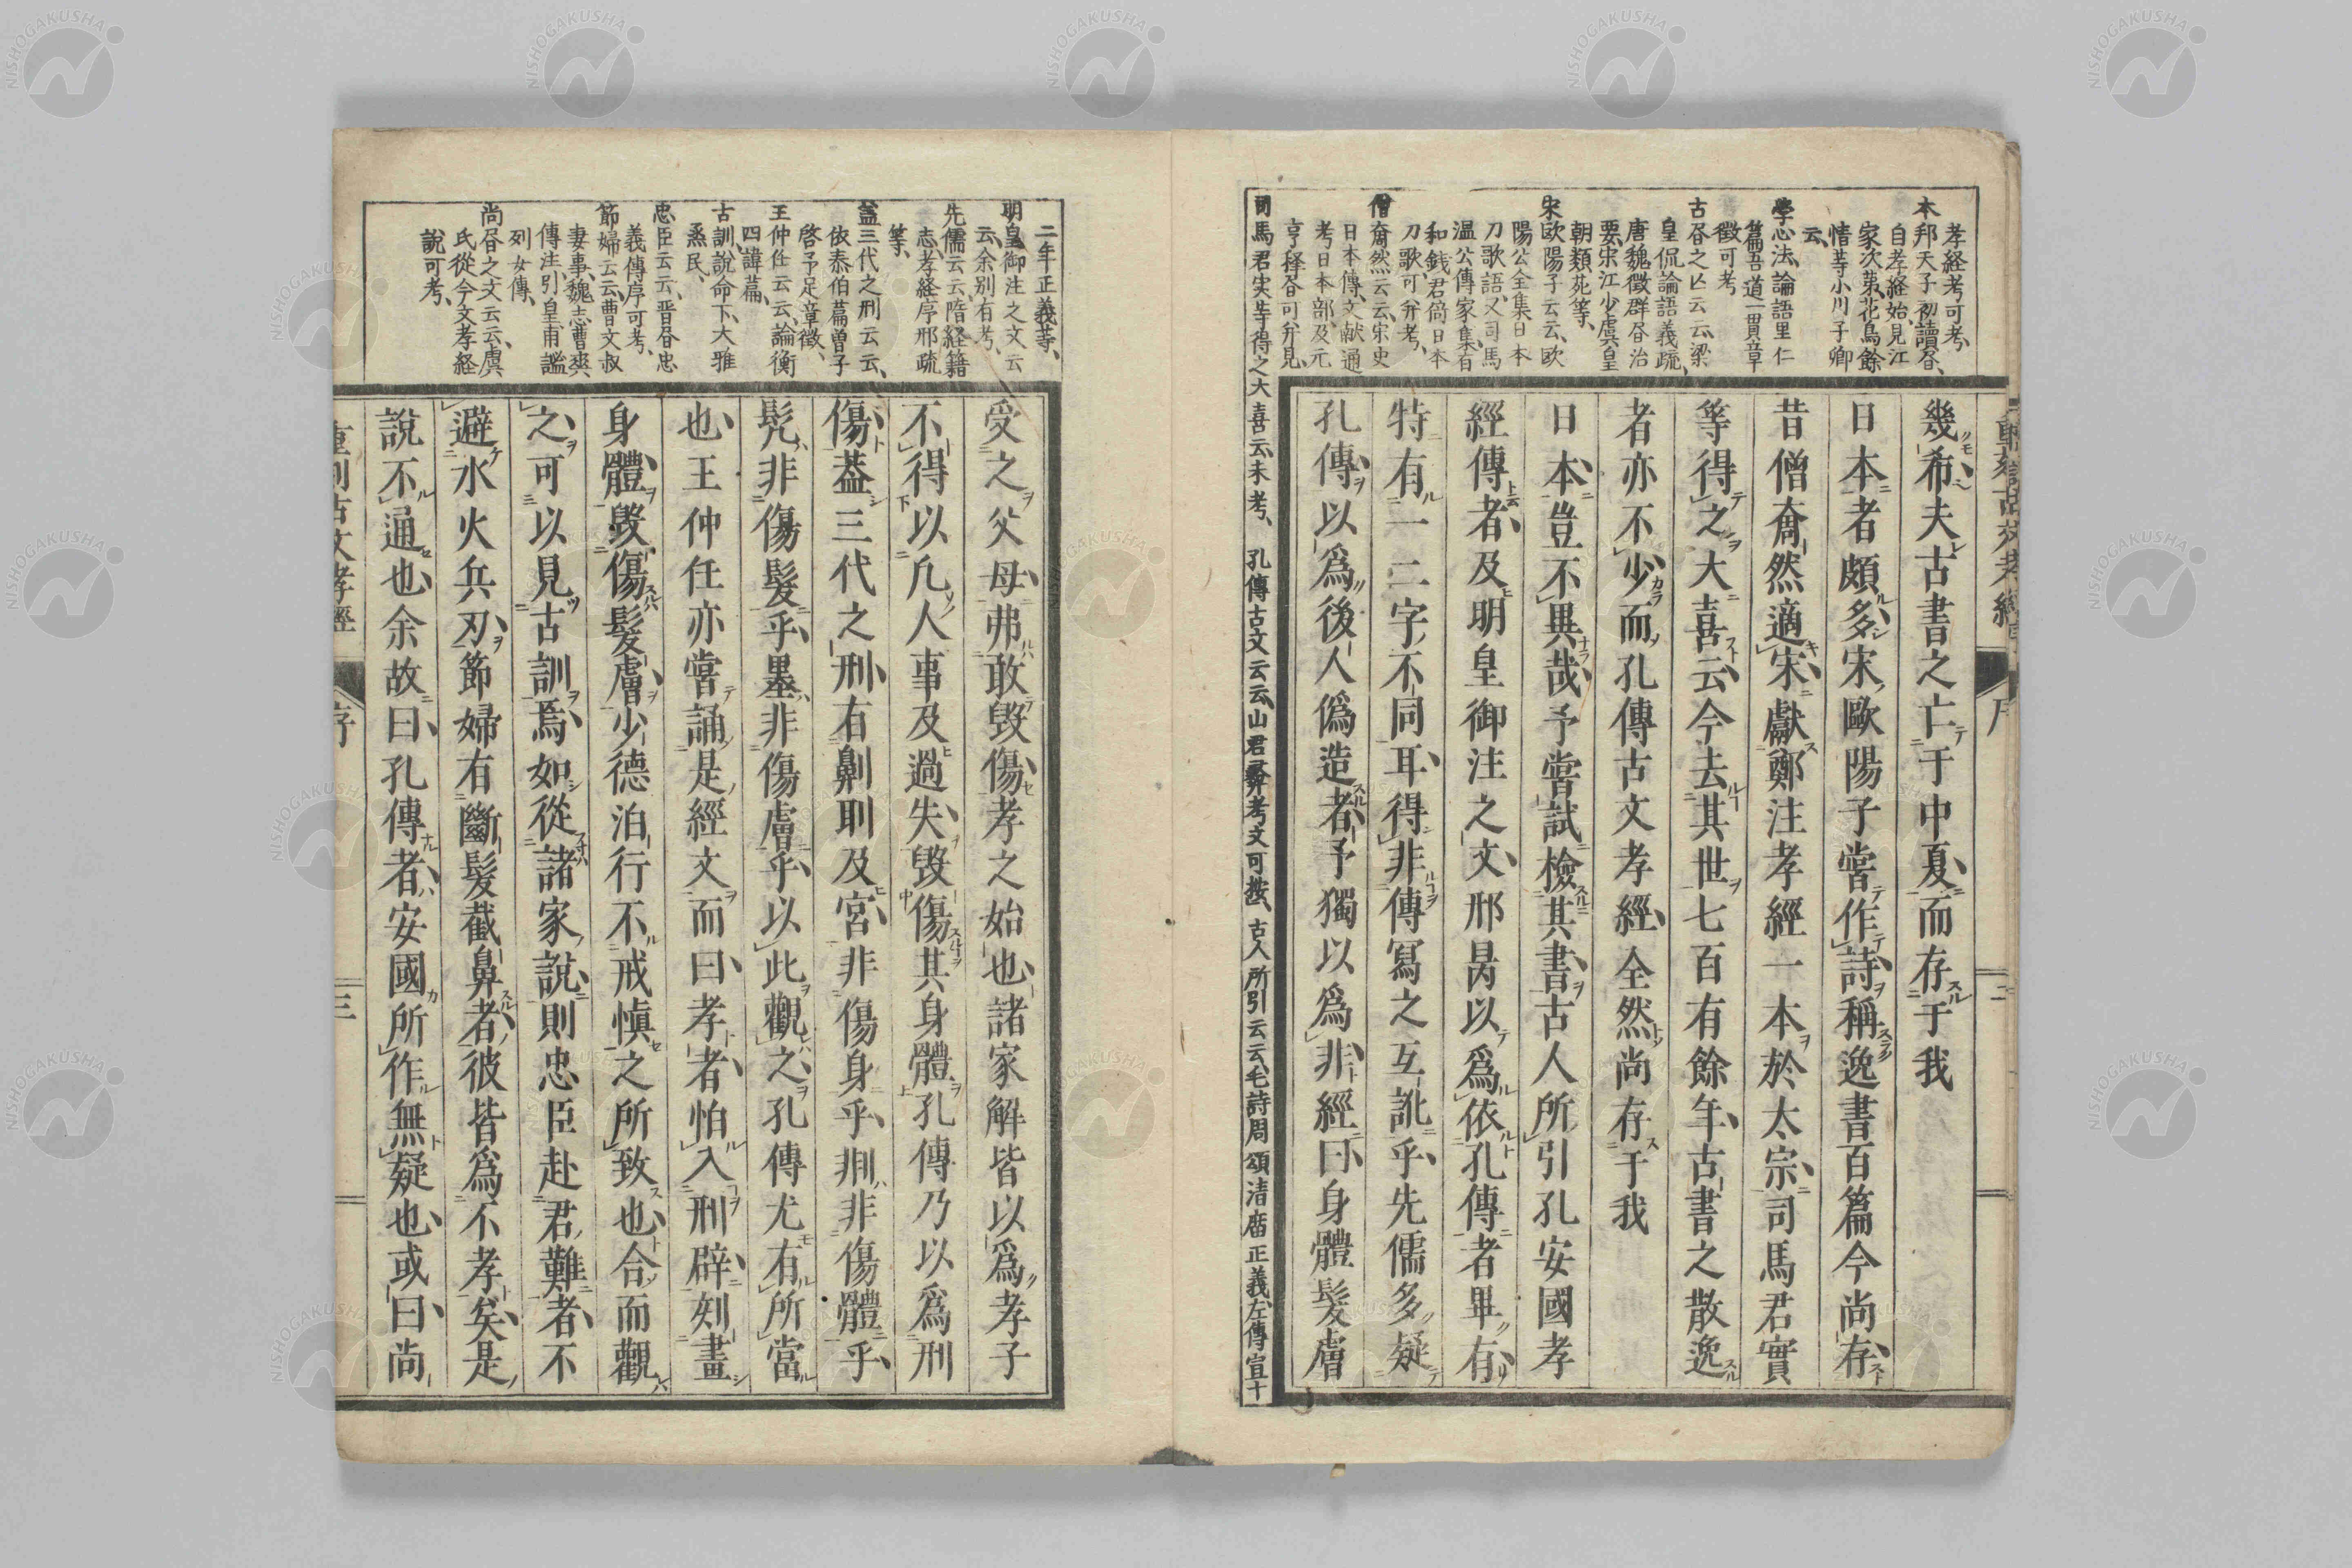 孝経考可考、
本邦天子初讀昏、
自孝経始見江
家次第、花鳥餘
情荨小川子卿
云、
學心法、論語里仁
篇吾道一貫章
徵可考
古昏之亾云云、梁
皇侃論語義疏、
唐魏徵群昏治
要、宋江少虞皇
朝類苑等、
宋歐陽子云云、歐
陽公全集日本
刀歌語、又司馬
溫公傳家集有
和錢君倚日本
刀歌可并考、
僧奝然云云、宋史
日本傳、文献通
考日本部、及元
亨釋昏可并見、
幾希夫古書之亡于中夏而存于我
日本者頗多宋歐陽子嘗作詩稱逸書百篇今尚存
昔僧奝然適宋獻鄭注孝經一本於太宗司馬君實
等得之大喜云今去其世七百有餘年古書之散逸
者亦不少而孔傳古文孝經全然尚存于我
日本豈不異哉予嘗試檢其書古人所引孔安國孝
經傳者及明皇御注之文邢昺以爲依孔傳者畢有
特有一二字不同耳得非傳寫之互訛乎先儒多疑
孔傳以爲後人僞造者予獨以爲非經曰身體髮膚
司馬君実等得之大喜云、未考、孔傳古文云云、山君彝考文可按、古人所引云云毛詩周頌清庿正義、左傳宣十
二年正義等、
明皇御注之文云
云、余别有考、
先儒云云、隋経籍
志、孝経序邢疏
等、
蓋三代之刑云云、
依泰伯篇曽子
啓予足章徵、
王仲任云云、論衡
四諱篇、
古訓、說命下、大雅
烝民、
忠臣云云、晋昏忠
義傳序可考、
節婦云云、曹文叔
妻事、魏志曹爽
傳注、引皇甫謐
列女傳、
尚昏之文云云、虞
氏從今文孝経
說可考、
受之父母弗敢毁傷孝之始也諸家解皆以爲孝子
不得以凢人事及過失毁傷其身體孔傳乃以爲刑
傷蓋三代之刑有劓刵及宫非傷身乎剕非傷體乎
髡非傷髮乎墨非傷膚乎以此觀之孔傳尤有所當
也王仲任亦嘗誦是經文而曰孝者怕入刑辟刻畫
身體毁傷髮膚少德泊行不戒愼之所致也合而觀
之可以見古訓焉如從諸家說則忠臣赴君難者不
避水火兵刃節婦有斷髮截鼻者彼皆爲不孝矣是
說不通也余故曰孔傳者安國所作無疑也或曰尚
序
三